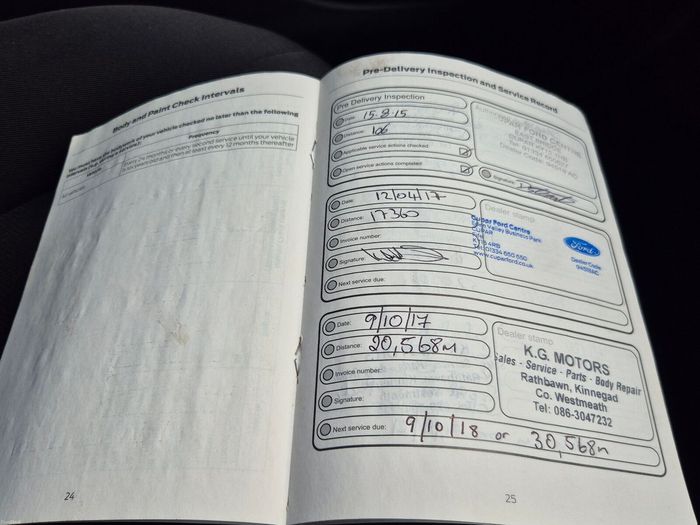 Body and Paint Check Intervals
You must have the bodywork of your vehicle checked no later than the following
Frequency
Every 24 months or every second service until your vehicle
is six years old and then at least every 12 months thereafter
24
Pre-Delivery Inspection and Service Record
Pre Delivery Inspection
Date: 15.8.15
Distance: 106
Applicable service actions checked
Open service actions completed
FORD CENTRE
Dealer Code:
Signature:
Date: 12/04/17
Distance: 17360
Invoice number:
Signature:
Next service due:
Dealer stamp
Cupar Ford Centre
Eden Valley Business Park
CUPAR
Fife
KY15 4RB
Tel: 01334 650 650
www.cuparford.co.uk
Ford
Dealer Code
Date: 9/10/17
Distance: 20,568m
Invoice number:
Signature:
Next service due: 9/10/18 or 30,568m
Dealer stamp
K.G. MOTORS
Sales - Service - Parts - Body Repair
Rathbawn, Kinnegad
Co. Westmeath
Tel: 086-3047232
25